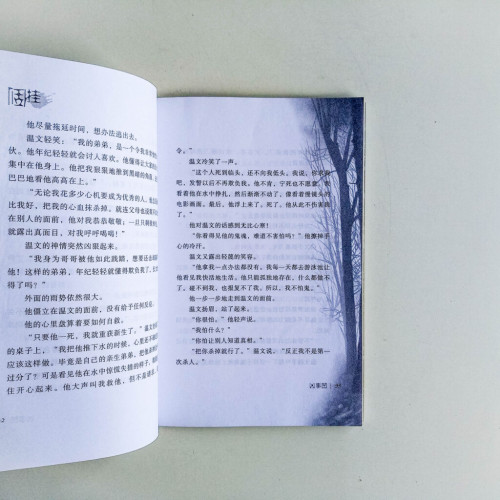 他尽量拖延时间,想办法逃出去。
温文轻笑:“我的弟弟,是一个令我
伏。他年纪轻轻就会讨人喜欢,他懂得让大家
集中在他身上。他把我狠狠地
巴巴地看他高高在上。”
“无论我花多少心机要成为优秀的人,他
比我好,把我的心血抹杀掉,就连父母也
在别人的面前,他对我恭恭敬敬;一旦只剩
就露出真面目,对我呼呼喝喝!”
温文的神情突然凶狠起来。
“我身为哥哥被他如此践踏,想要活在
他!这样的弟弟,年纪轻轻就懂得欺负我了,
得了吗?”
外面的雨势依然很大。
他僵立在温文的面前,没有给予任何反应。
他的心里盘算着要如何自救。
“只要他一死,我就重获新生了。”温文
的桌子上,“我把他推下水的时候,心里
应该这样做。毕竟是自己的亲生弟弟,把他
过分了?可是看见他在水中惊慌失措的样子,
住开心起来。他大声叫我救他,但不是
令。”
温文冷笑了一声。
“这个人死到临头,还不向我低头。我说,你求我
吧,发誓以后不再欺负我。他不肯,宁死也不愿意。我
看着他在水中挣扎,然后渐渐不动了,像看着慢镜头的
电影画面。最后,他浮上来了。死了。他从此不伤害我
了。”
他对温文的话感到无比心寒!
“你看得见他的鬼魂,难道不害怕吗?”他擦掉手
心的冷汗。
温文又露出轻蔑的笑容。
“他拿我一点办法都没有。我每一天都去游泳池让
他看见我快活地生活。他只能孤独地存在,什么都做不
了。碰不到我,也报复不了我。所以,我不怕鬼。”
他一步一步地走到温文的面前。
温文扬眉,站了起来。
“你很怕。”他轻声说。
“我怕什么?”
“你怕让别人知道真相。”
“把你杀掉就行了。”温文说,“反正我不是第一
次杀人。”